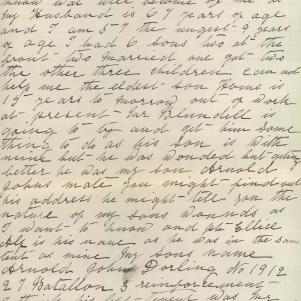 my Husband is 67 years of age
and I am 57 the ungest 9 years
of age I had 6 sons two at the
front two married one got two
the other three children can not
help me the eldest son Home is
15 years to morrow out of work
at present Mr Blundell is
going to by and get him some
thing to do as his son is with
mine but he was wonded but getting
better he was my son Arnold
Johns mate you might find out
his address he might tell you the
nature of my sons wounds as
I want to know and ph Ellice
is his name as he was in the same
tent as mine My sons name
Arnold John Dorling No 1912
27 Batallon 3 reinforcement